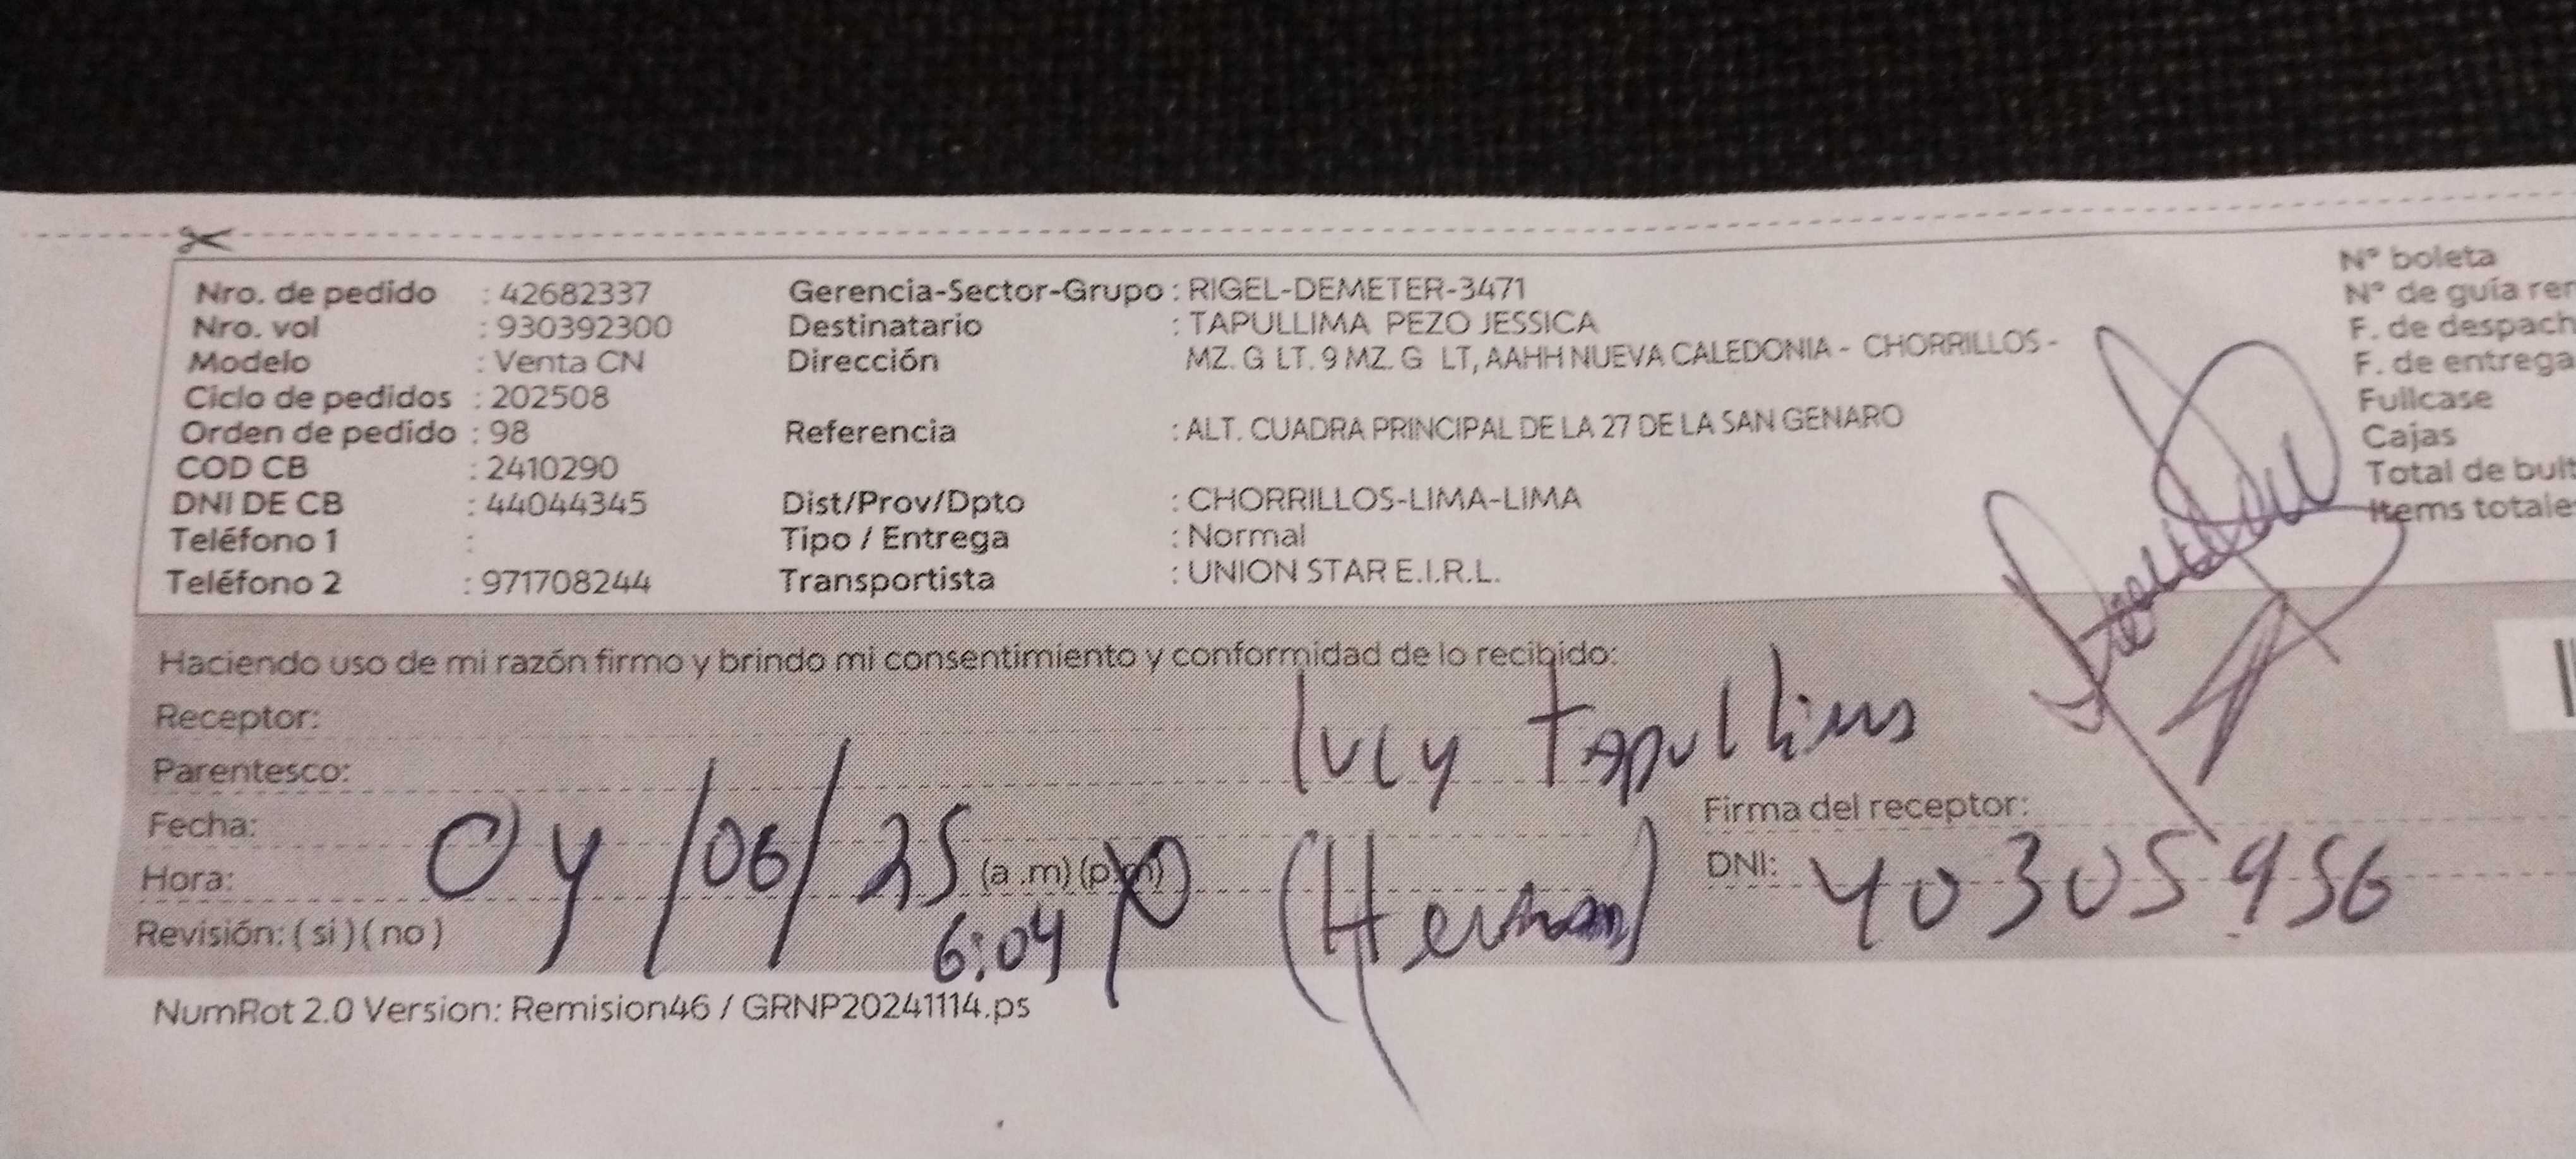 Nro. de pedido : 42682337
Nro. vol : 930392300
Modelo : Venta CN
Ciclo de pedidos : 202508
Orden de pedido : 98
COD CB : 2410290
DNI DE CB : 44044345
Teléfono 1 :
Teléfono 2 : 971708244
Gerencia-Sector-Grupo : RIGEL-DEMETER-3471
Destinatario : TAPULLIMA PEZO JESSICA
Dirección MZ. G LT. 9 MZ. G LT, AAHH NUEVA CALEDONIA - CHORRILLOS -
Referencia : ALT. CUADRA PRINCIPAL DE LA 27 DE LA SAN GENARO
Dist/Prov/Dpto : CHORRILLOS-LIMA-LIMA
Tipo / Entrega : Normal
Transportista : UNION STAR E.I.R.L.
N° boleta
N° de guía rem
F. de despach
F. de entrega
Fullcase
Cajas
Total de bult
Items totale
Haciendo uso de mi razón firmo y brindo mi consentimiento y conformidad de lo recibido:
Receptor:
lucy
Parentesco:
Fecha: 04/06/25
Hora: (a .m) (p.m)
6:04 p
Revisión: ( si ) ( no )
Firma del receptor:
DNI: 40305956
NumRot 2.0 Version: Remision46 / GRNP20241114.ps